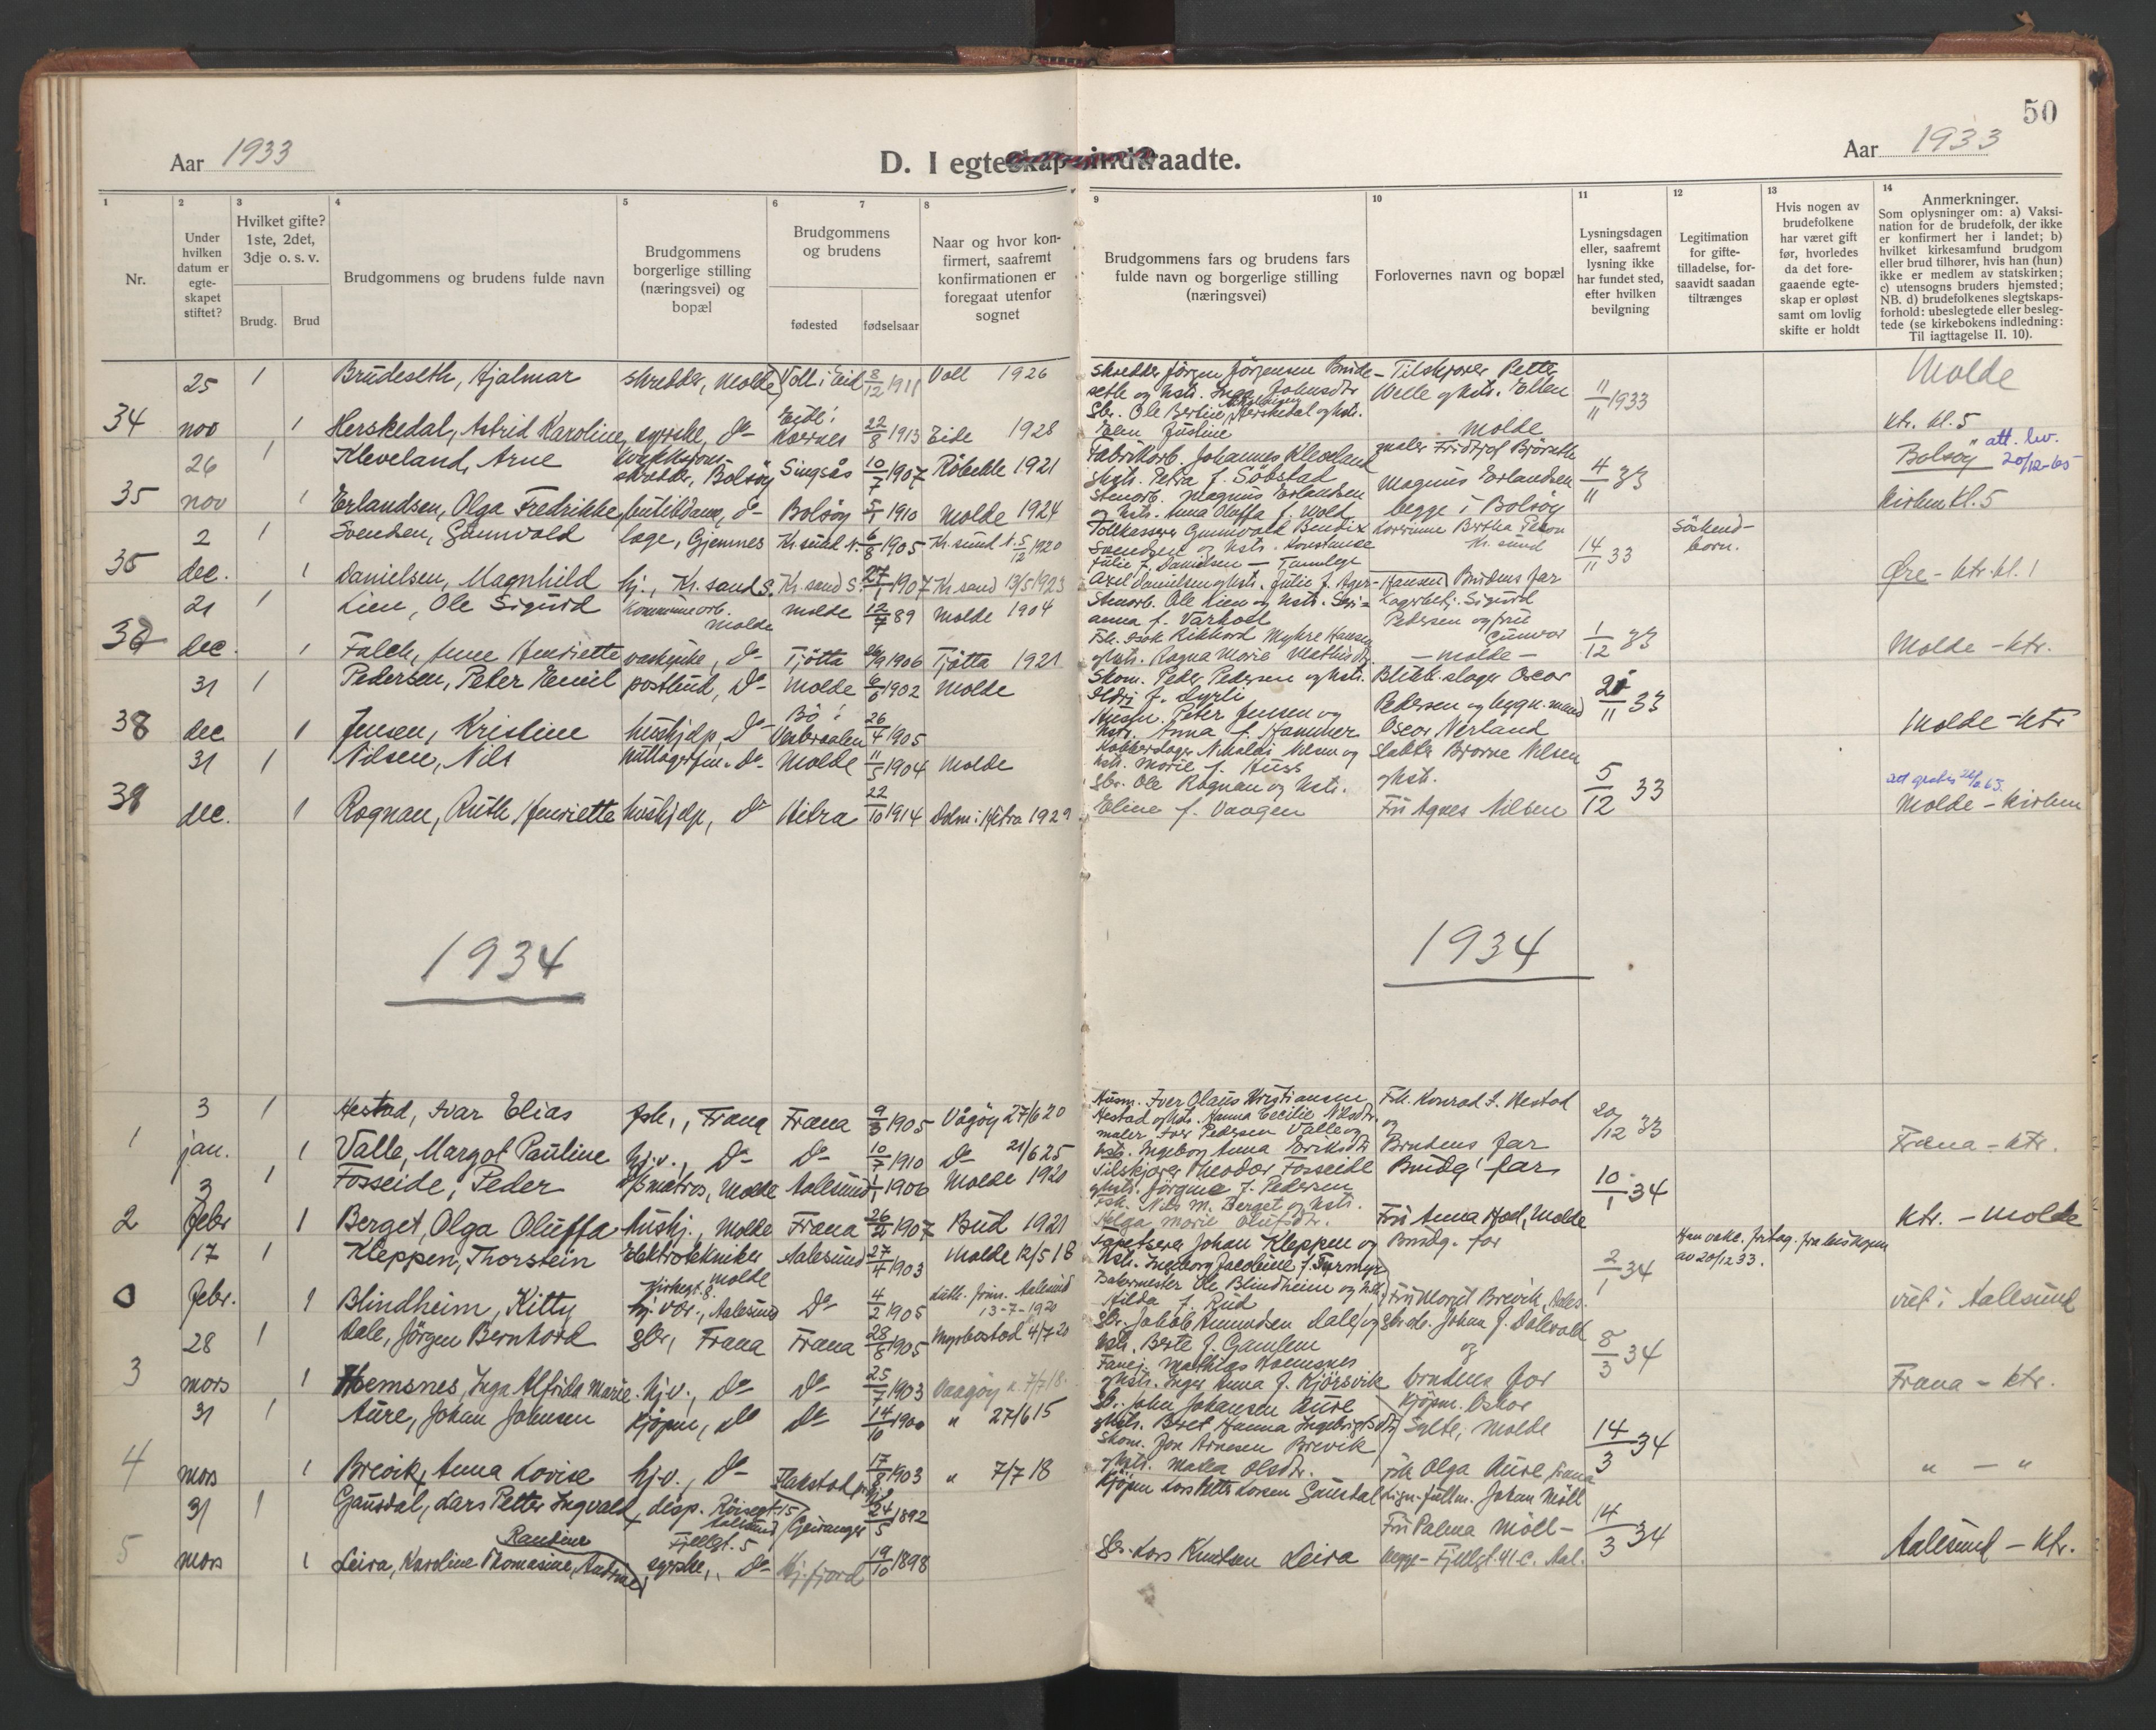 50
Aar 1933
D. I egteskap indtraadte.
Aar 1933
1
2
3
4
5
6
7
8
9
10
11
12
13
14
Nr.
Under
hvilken
datum er
egte-
skapet
stiftet?
Hvilket gifte?
1ste, 2det,
3dje o. s. v.
Brudg.
Brud
Brudgommens og brudens fulde navn
Brudgommens
borgerlige stilling
(næringsvei) og
bopæl
Brudgommens
og brudens
fødested
fødselsaar
Naar og hvor kon-
firmert, saafremt
konfirmationen er
foregaat utenfor
sognet
Brudgommens fars og brudens fars
fulde navn og borgerlige stilling
(næringsvei)
Forlovernes navn og bopæl
Lysningsdagen
eller, saafremt
lysning ikke
har fundet sted,
efter hvilken
bevilgning
Legitimation
for gifte-
tilladelse, for-
saavidt saadan
tiltrænges
Hvis nogen av
brudefolkene
har været gift
før, hvorledes
da det fore-
gaaende egte-
skap er opløst
samt om lovlig
skifte er holdt
Anmerkninger.
Som oplysninger om: a) Vaksi-
nation for de brudefolk, der ikke
er konfirmert her i landet; b)
hvilket kirkesamfund brudgom
eller brud tilhører, hvis han (hun)
ikke er medlem av statskirken;
c) utensogns bruders hjemsted;
NB. d) brudefolkenes slegtskaps-
forhold: ubeslegtede eller besleg-
tede (se kirkebokens indledning:
Til iagttagelse II. 10).
25 1 Brudeseth, Hjalmar skredder, Molde Voll i Eid 8/12 1911 Voll 1926 Skredder Jörgen Jörgensen Brude- Tilskjærer Petter Molde
seth og hstr. Inga Johnsdtr Welle og hstr. Ellen 11/11 1933
34 nov 1 Herskedal, Astrid Karoline, syerske, do Eide i Kornes 22/8 1913 Eide 1928 Gbr. Ole Bertinu Herskedal og hstr. Elen Justine Molde ktr. kl. 5
26 1 Kleveland, Arne skredder, Bolsöy Singsås 10/7 1907 Röbekk 1921 Fabrikarb. Johannes Kleveland Fridtjof Björseth Bolsöy att. lev. 20/12-65
og hstr. Petra f. Söbstad Magnus Erlandsen 4/11 33
35 nov 1 Erlandsen, Olga Fredrikke, butikdame, do Bolsöy 5/1 1910 Molde 1924 Stenarb. Magnus Erlandsen og hstr. Anna Oluffa f. Wold begge i Bolsöy kirken kl. 5
2 1 Svendsen, Gunnvald læge, Gjemnes Kr.sund N. 6/8 1905 Kr.sund N. 5/12 1920 Tolkasserer Gunnvald Bendix Svendsen og hstr. Konstanse Kr. sund 14/11 33 Söskend-
born.
36 dec. 1 Danielsen, Magnhild hj., Kr.sand S. Kr.sand S. 27/1 1907 Kr.sand 13/5 1923 Julie f. Danielsen – Tannlege
Axel Danielsen og hstr. Julie f. Hansen Brudens far Øre – ktr. kl. 1
21 1 Lien, Ole Sigurd Kommunearb. Molde Molde 12/7 89 Molde 1904 Stenarb. Ole Lien og hstr. Seri-
anna f. Varhol Lagerbetj. Sigurd
Pedersen og frue
Gunvor 1/12 33
37 dec. 1 Falch, Anne Henriette vaskepike, do Tjötta 26/9 1906 Tjötta 1921 Fsk. Isak Rikkard Myhre Hansen
og hstr. Ragna Marie Mathisdtr. – Molde – Molde – ktr.
31 1 Pedersen, Peter Emil postbud, do Molde 6/8 1902 Molde Skom. Peder Pedersen og hstr. Blikk.slager Oscar
Eldrj f. Lyrli Pedersen og 21/11 33
38 dec 1 Jensen, Kristine hushjelp, do Bö i Vesteraalen 26/4 1905 Husm. Peter Jensen og
hstr. Anna f. Hammer Oscar Nerland Molde – ktr
31 1 Nilsen, Nils do Molde 11/5 1904 Molde Kobberslager Nikolai Nilsen og Slakter Bjarne Nilsen
hstr. Marie f. Huss og hstr. 5/12 33
39 dec. 1 Rognan, Ruth Henriette hushjelp, do Hitra 22/10 1914 Dolm i Hitra 1929 Gbr. Ole Rognan og hstr.
Eline f. Vaagen Fru Agnes Nilsen Molde – kirken
1934
1934
3 1 Hestad, Ivar Elias fsk., Fræna Fræna 9/3 1905 Vågöy 27/6 20 Husm. Iver Olaus Kristiansen Fsk. Konrad I. Hestad
Hestad og hstr. Hanna Cecilie Nilsdtr. og 20/12 33
1 jan. 1 Valle, Margot Pauline hj.v., do do 10/7 1910 do 21/6 25 Maler Iver Pedersen Valle og
hstr. Ingeborg Anna Eriksdtr Brudens far Fræna – ktr.
3 1 Fosseide, Peder matros, Molde Aalesund 1/1 1906 Molde 1920 Tilskjærer Theodor Fosseide Brudg.' far
og hstr. Jörgine f. Pedersen 10/1 34
2 febr 1 Berget, Olga Oluffa hushj., Molde Fræna 26/2 1907 Bud 1921 Fsk. Nils M. Berget og hstr.
Helga Marie Olufsdtr. Fru Anna Hoel, Molde ktr. – Molde
17 1 Kleppen, Thorstein Elektrotekniker Molde Aalesund 27/4 1903 Molde 12/5 18 Tapetserer Johan Kleppen og Brudg. far
hstr. Ingeborg Jacobine f. Furmyr 2/1 34 av 20/12 33.
0 febr. 1 Blindheim, Kitty Kirkegt. 8. hj. vær., Aalesund do 4/2 1905 Aalesund 13-7-1920 Bakermester Ole Blindheim og hstr.
Hilda f. Rud Fru Marit Breivik, Aales. viet i Aalesund
28 1 Dale, Jörgen Bernhard Gbr, Fræna Fræna 28/8 1905 Myrbostad 4/7 20 Gbr. Jakob Amundsen Dale og Johan J. Dalevold
hstr. Berte f. Gamlem og 8/3 34
3 mars 1 Hoemsnes, Inga Alfrida Marie hj.v., do do 25/7 1903 Vaagöy k. 7/7 18. Mathias Hoemsnes
og hstr. Inger Anna f. Kjörsvik brudens far Fræna – ktr.
31 1 Aure, Johan Johnsen kjöpm, do do 14/10 1900 " 27/6 15 Gbr. John Johansen Aure Kjöpm. Oskar
og hstr. Beret Hanna Ingebrigtsdtr Sylte, Molde 14/3 34
4 mars 1 Breivik, Anna Lovise hj.v., do Flakstad 17/8 1903 " 7/7 18 Skom. Jon Arnesen Brevik
og hstr. Maka Olsdtr. Frk Olga Aure, Fræna " – "
31 1 Gausdal, Lars Petter Ingvald, disp. Röisegt. 15 Aalesund Geiranger 24/5 1892 Kjöpm Lars Petter Larsen Gausdal Johan Möll
Fru Palma Möll – 14/3 34
5 mars 1 Rautine Leira, Karoline Thomasine, Andrine Fjellgt. 5 syerske, do Hj.fjord 19/10 1898 Gbr. Lars Knutsen Leira begge – Fjellgt. 41 c. Aal. Aalesund – ktr.